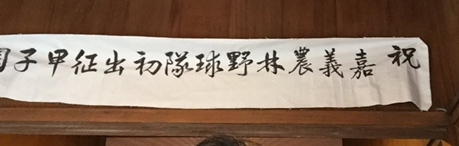 祝 嘉義農林野球隊初出征甲子園